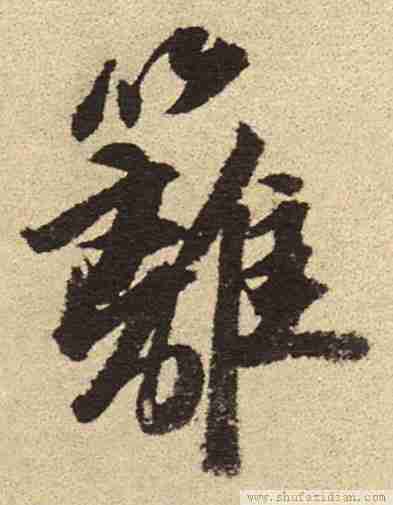 籬
www.shufazidian.com